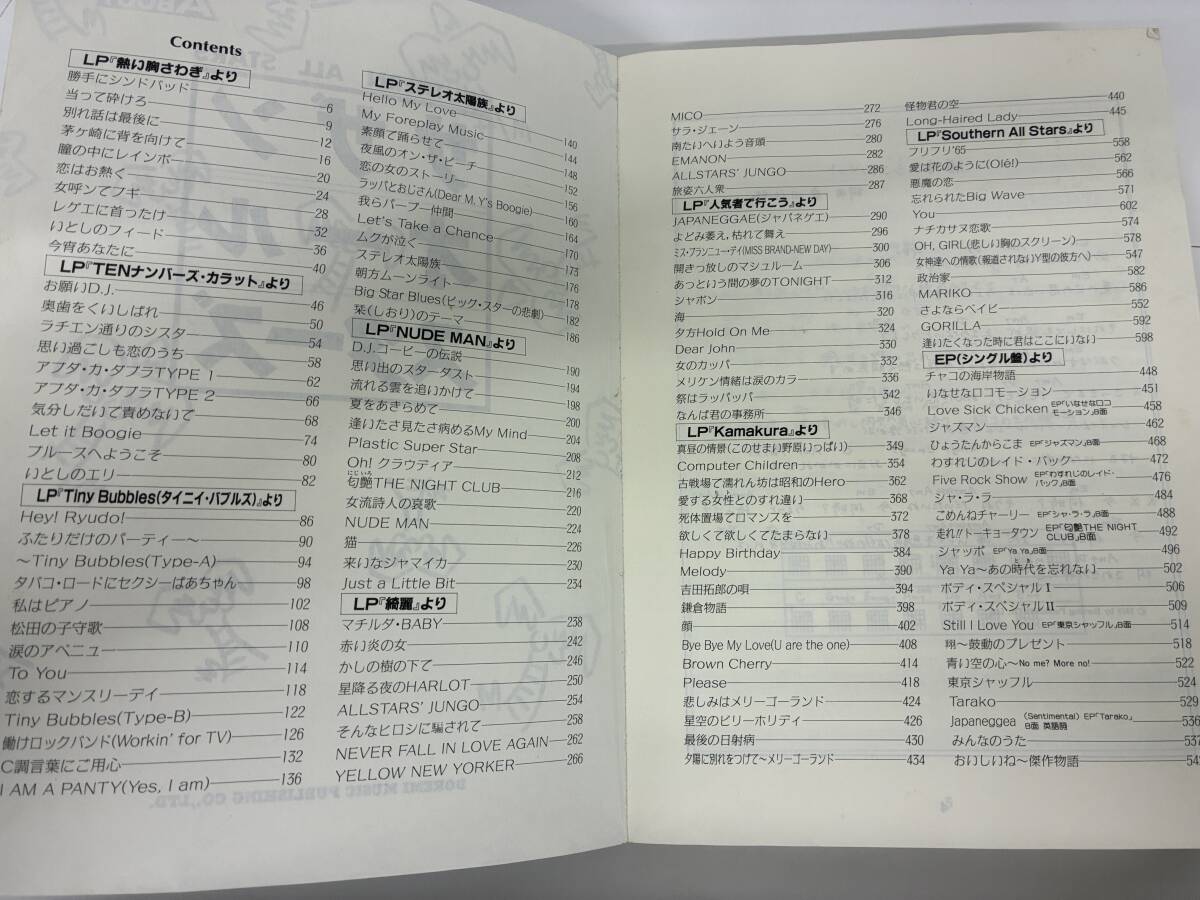 Contents
LP『熱い胸さわぎ』より
勝手にシンドバッド 6
当って砕けろ 9
別れ話は最後に 12
茅ヶ崎に背を向けて 16
瞳の中にレインボー 20
恋はお熱く 24
女呼んでブギ 28
レゲエに首ったけ 32
いとしのフィート 36
今宵あなたに 40
LP『TENナンバーズ・カラット』より
お願いD.J. 46
奥歯をくいしばれ 50
ラチエン通りのシスタ 54
思い過ごしも恋のうち 58
アブダ・カ・ダブラTYPE 1 62
アブダ・カ・ダブラTYPE 2 66
気分しだいで責めないで 68
Let it Boogie 74
ブルースへようこそ 80
いとしのエリー 82
LP『Tiny Bubbles(タイニイ・バブルス)』より
Hey! Ryudo! 86
ふたりだけのパーティー〜 90
〜Tiny Bubbles(Type-A) 94
タバコ・ロードにセクシーばあちゃん 98
私はピアノ 102
松田の子守歌 108
涙のアベニュー 110
To You 114
恋するマンスリーデイ 118
Tiny Bubbles(Type-B) 122
働けロックバンド(Workin' for TV) 126
C調言葉にご用心 132
I AM A PANTY(Yes, I am) 136
LP『ステレオ太陽族』より
Hello My Love 140
My Foreplay Music 144
素顔で踊らせて 148
夜風のオン・ザ・ビーチ 152
恋の女のストーリー 156
ラッパとおじさん(Dear M. Y's Boogie) 160
我らパープー仲間 164
Let's Take a Chance 170
ムクが泣く 173
ステレオ太陽族 176
朝方ムーンライト 178
Big Star Blues(ビッグ・スターの悲劇) 182
栞(しおり)のテーマ 186
LP『NUDE MAN』より
D.J.コービーの伝説 190
思い出のスターダスト 194
流れる雲を追いかけて 198
夏をあきらめて 200
逢いたさ見たさ病めるMy Mind 204
Plastic Super Star 208
Oh! クラウディア 212
匂艶THE NIGHT CLUB 216
女流詩人の哀歌 220
NUDE MAN 224
猫 226
来いなジャマイカ 230
Just a Little Bit 234
LP『綺麗』より
マチルダ・BABY 238
赤い炎の女 242
かしの樹の下で 246
星降る夜のHARLOT 250
ALLSTARS' JUNGO 254
そんなヒロシに騙されて 258
NEVER FALL IN LOVE AGAIN 262
YELLOW NEW YORKER 266
MICO 272
サラ・ジェーン 276
南たいへいよう音頭 280
EMANON 282
ALLSTARS' JUNGO 286
旅姿六人衆 287
LP『人気者で行こう』より
JAPANEGGAE(ジャパネゲエ) 290
よどみ萎え,枯れて舞え 296
ミス・ブランニュー・デイ(MISS BRAND-NEW DAY) 300
開きっ放しのマシュルーム 306
あっという間の夢のTONIGHT 312
シャボン 316
海 320
夕方Hold On Me 324
Dear John 330
女のカッパ 332
メリケン情緒は涙のカラー 336
祭はラッパッパ 342
なんば君の事務所 346
LP『Kamakura』より
真昼の情景(このせまい野原いっぱい) 349
Computer Children 354
古戦場で濡れん坊は昭和のHero 362
愛する女性とのすれ違い 368
死体置場でロマンスを 372
欲しくて欲しくてたまらない 378
Happy Birthday 384
Melody 390
吉田拓郎の唄 394
鎌倉物語 398
顔 402
Bye Bye My Love(U are the one) 408
Brown Cherry 414
Please 418
悲しみはメリーゴーランド 424
星空のビリーホリディ 426
最後の日射病 430
夕陽に別れをつげて〜メリーゴーランド 434
怪物君の空 440
Long-Haired Lady 445
LP『Southern All Stars』より
フリフリ'65 558
愛は花のように(Olé!) 562
悪魔の恋 566
忘れられたBig Wave 571
You 602
ナチカサヌ恋歌 574
OH, GIRL(悲しい胸のスクリーン) 578
女神達への情歌(報道されないY型の彼方へ) 547
政治家 582
MARIKO 586
さよならベイビー 552
GORILLA 592
逢いたくなった時に君はここにいない 598
EP(シングル盤)より
チャコの海岸物語 448
いなせなロコモーション 451
Love Sick Chicken EP『いなせなロコモーション』B面 458
ジャズマン 462
ひょうたんからこま EP『ジャズマン』B面 468
わすれじのレイド・バック 472
Five Rock Show EP『わすれじのレイド・バック』B面 476
シャ・ラ・ラ 484
ごめんねチャーリー EP『シャ・ラ・ラ』B面 488
走れ!!トーキョータウン EP『匂艶THE NIGHT CLUB』B面 492
シャッポ EP『Ya Ya』B面 496
Ya Ya〜あの時代を忘れない 502
ボディ・スペシャル I 506
ボディ・スペシャル II 509
Still I Love You EP『東京シャッフル』B面 514
翔〜鼓動のプレゼント 518
青い空の心〜No me? More no! 522
東京シャッフル 524
Tarako 529
Japaneggea (Sentimental) EP『Tarako』B面 英語詞 536
みんなのうた 537
おいしいね〜傑作物語